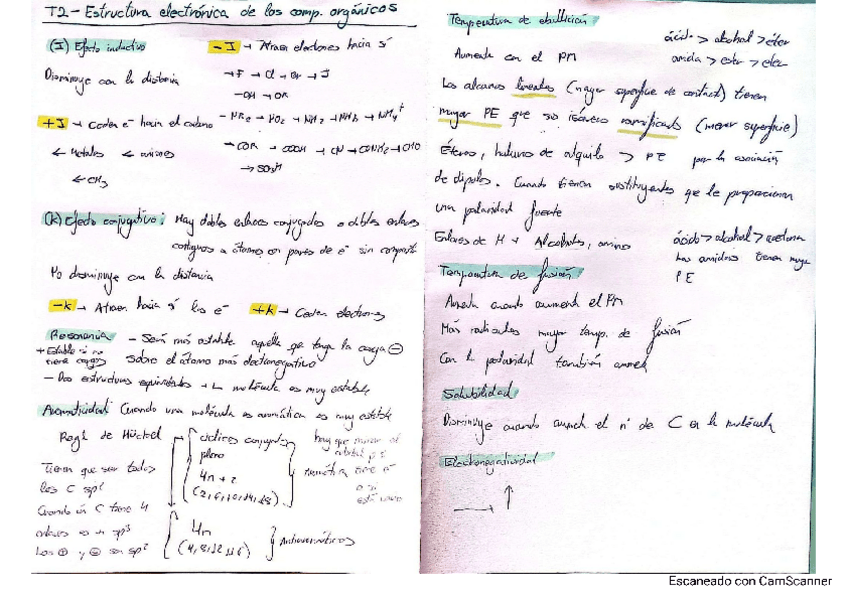 T2 - Estructura electrónica de los comp. orgánicos
(I) Efecto inductivo
Disminuye con la distancia
-I → Atraen electrones hacia sí
→F → Cl → Br → I
-OH → OR
+I → Ceden e⁻ hacia el carbono
-NR₂ → NO₂ → NH₂ → NH₃ → NH₄⁺
-COR → COOH → CN → CONH₂ → CHO
→ SO₃H
← Metales ← aminas
← CH₃
(K) Efecto conjugativo: Hay dobles enlaces conjugados o dobles enlaces
contiguos a átomos con pares de e⁻ sin compartir
No disminuye con la distancia
-K → Atraen hacia sí los e⁻ +K → Ceden electrones
Resonancia - Será más estable aquella que tenga la carga ⊖
sobre el átomo más electronegativo
+ Estable si no
tiene cargas
- Dos estructuras equivalentes → La molécula es muy estable
Aromaticidad Cuando una molécula es aromática es muy estable
Regla de Hückel
cíclicos conjugados
plano
4n + 2
(2, 6, 10, 14, 18)
hay que mirar el
orbital p
Tienen que ser todos
los C sp²
Cuando un C tiene 4
enlaces es sp³
Los ⊕ y ⊖ son sp²
4n
(4, 8, 12, 16)
Antiaromáticos
Temperatura de ebullición
Aumenta con el PM
ácido > alcohol > éter
amida > ester > éter
Los alcanos lineales (mayor superficie de contacto) tienen
mayor PE que sus isómeros ramificados (menor superficie)
Éteres, haluros de alquilo > PE por la asociación
de dipolos. Cuando tienen sustituyentes que le proporcionan
una polaridad fuente
Enlaces de H → Alcoholes, aminas
ácido > alcohol > acetona
Las amidas tienen mayor
PE
Temperatura de fusión
Aumenta cuando aumenta el PM
Más radicales mayor temp. de fusión
Con la polaridad también aumenta
Solubilidad
Disminuye cuando aumenta el nº de C en la molécula
Electronegatividad
Escaneado con CamScanner